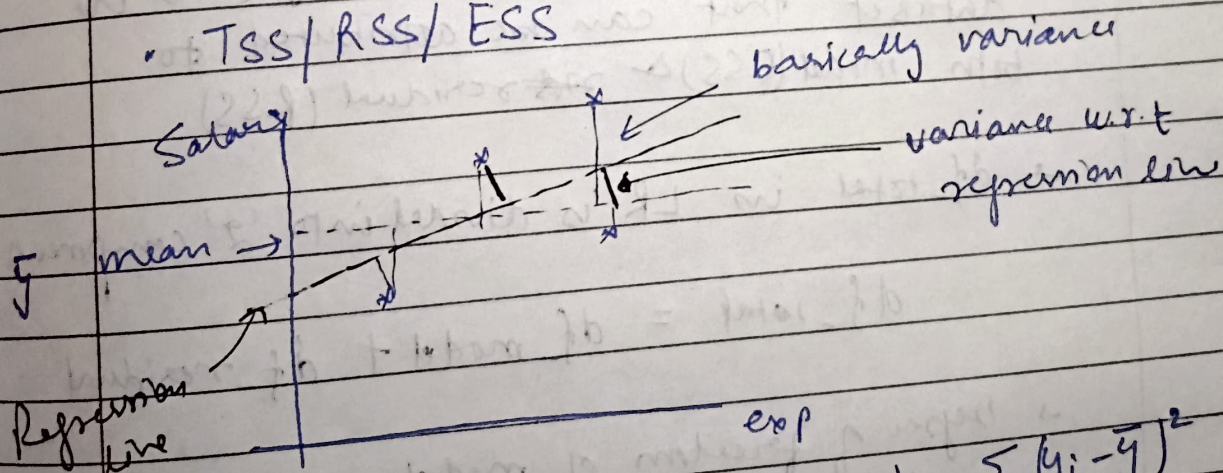 . TSS/RSS/ESS
basically variance
Salary
variance w.r.t
regression line
ȳ mean →
Regression
line
exp
Σ(yi - ȳ)²